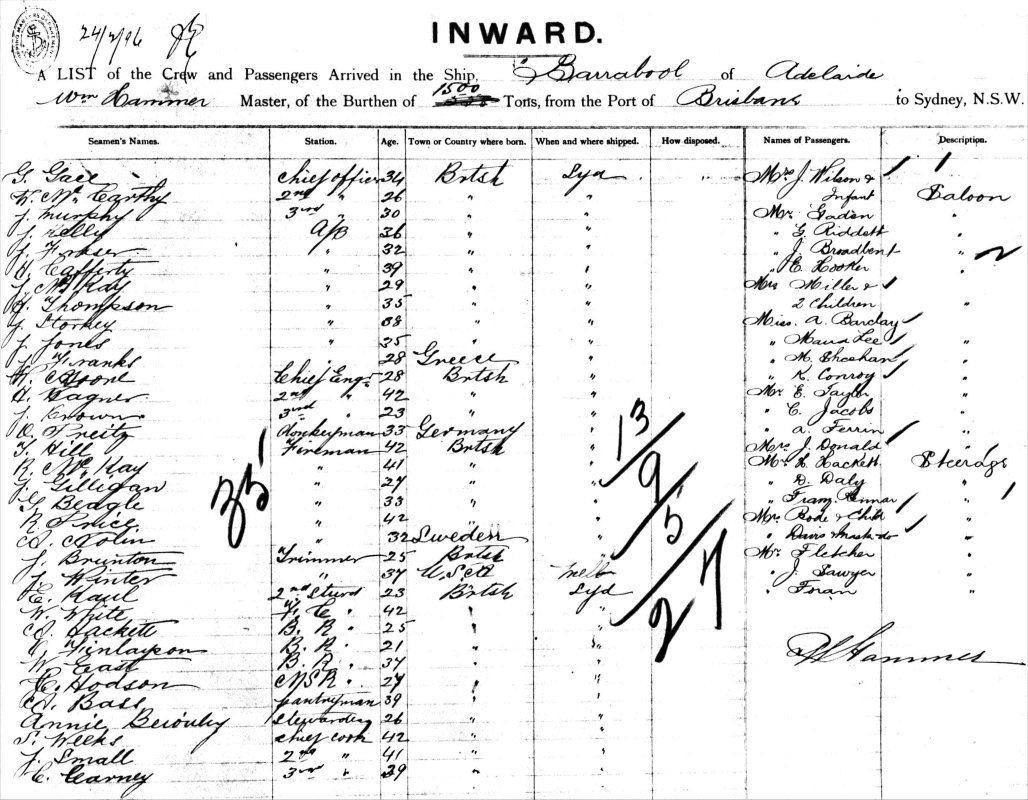 24/2/96
INWARD.
A LIST of the Crew and Passengers Arrived in the Ship, Barrabool of Adelaide
Wm Hammer Master, of the Burthen of 1500 Tons, from the Port of Brisbane to Sydney, N.S.W.
Seamen's Names. Station. Age. Town or Country where born. When and where shipped. How disposed. Names of Passengers. Description.
G. chief officer 34 Brtsh Syd " Mrs J. Wilson &
McCarthy 2nd " 26 " " Infant Saloon
J. Murphy 3rd " 30 " " Mr Gaden "
J. Kelly A/B 36 " " " G. Riddett
J. Fraser " 32 " " " J. Broadbent " 2
Cafferty " 39 " " " E. Hooker "
J. McKay " 29 " " Mrs Miller &
Thompson " 35 " " 2 Children "
Storkey " 38 " " Miss. A. Barclay
J. Jones " 25 " " " Maud Lee "
J. Franks " 28 Greece " " M. Sheehan "
Chief Engr 28 Brtsh " " K. Conroy "
H. Wagner 2nd " 42 " " Mr E. Taylor "
J. Brown 3rd " 23 " " " C. Jacobs "
Preitz donkeyman 33 Germany " " A. Ferrin "
T. Hill Fireman 42 Brtsh " Mrs J. Donald "
R. McKay " 41 " " Mr Hackett Steerage
J. Gilligan " 27 " " " D. Daly "
G. Beagle " 33 " " "
R. Price " 42 " " Mrs Bode & Child "
Nolin " 32 Sweden " " Davis "
J. Brunton Trimmer 25 Brtsh " Mr Fletcher "
J. Winter " 37 U.S.A Melb " J. Sawyer "
E. Kaul 2nd Sturd 23 Brtsh Syd " Foran "
W. White 42 " "
A. Hackett B. R. " 25 " "
Finlayson B. R. " 21 " "
W. East B. R. " 37 " "
C. Hodson M.S.R. " 27 " "
A. Bass pantryman 39 " "
Annie stewardess 26 " "
S. Weeks chief cook 42 " "
J. Small 2nd " 41 " "
C. Carney 3rd " 39 " "
35
13/9/5/27
Hammer